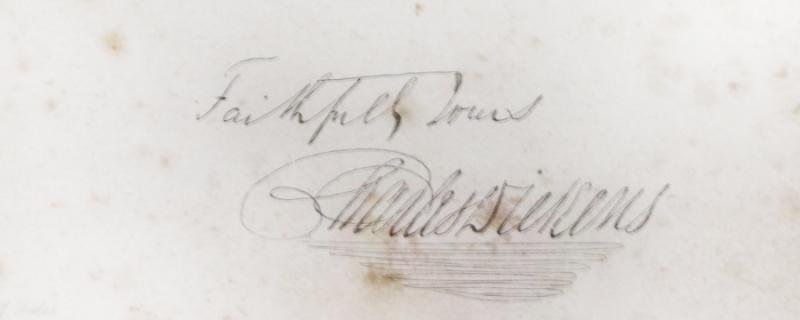 Faithfully Yours
Charles Dickens